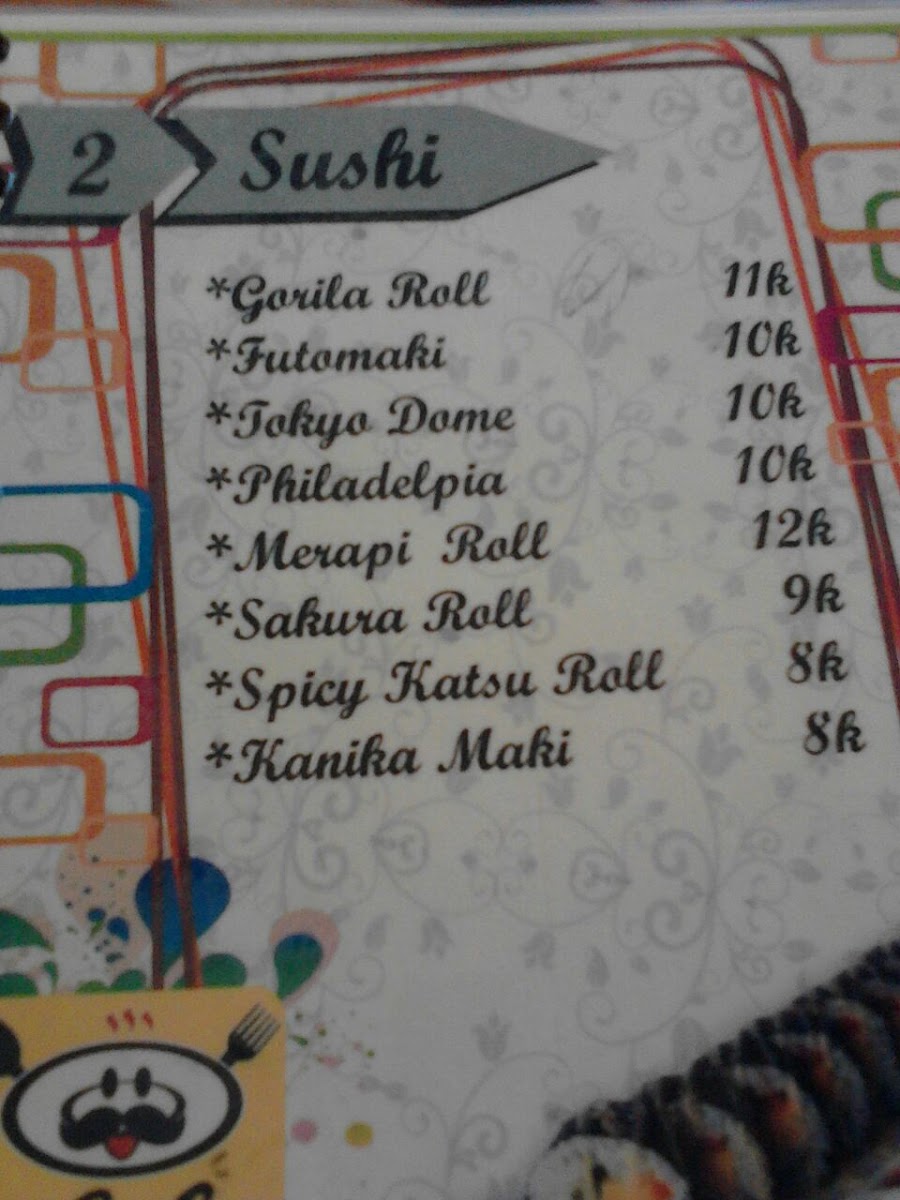 2 Sushi
*Gorila Roll 11k
*Futomaki 10k
*Tokyo Dome 10k
*Philadelpia 10k
*Merapi Roll 12k
*Sakura Roll 9k
*Spicy Katsu Roll 8k
*Kanika Maki 8k